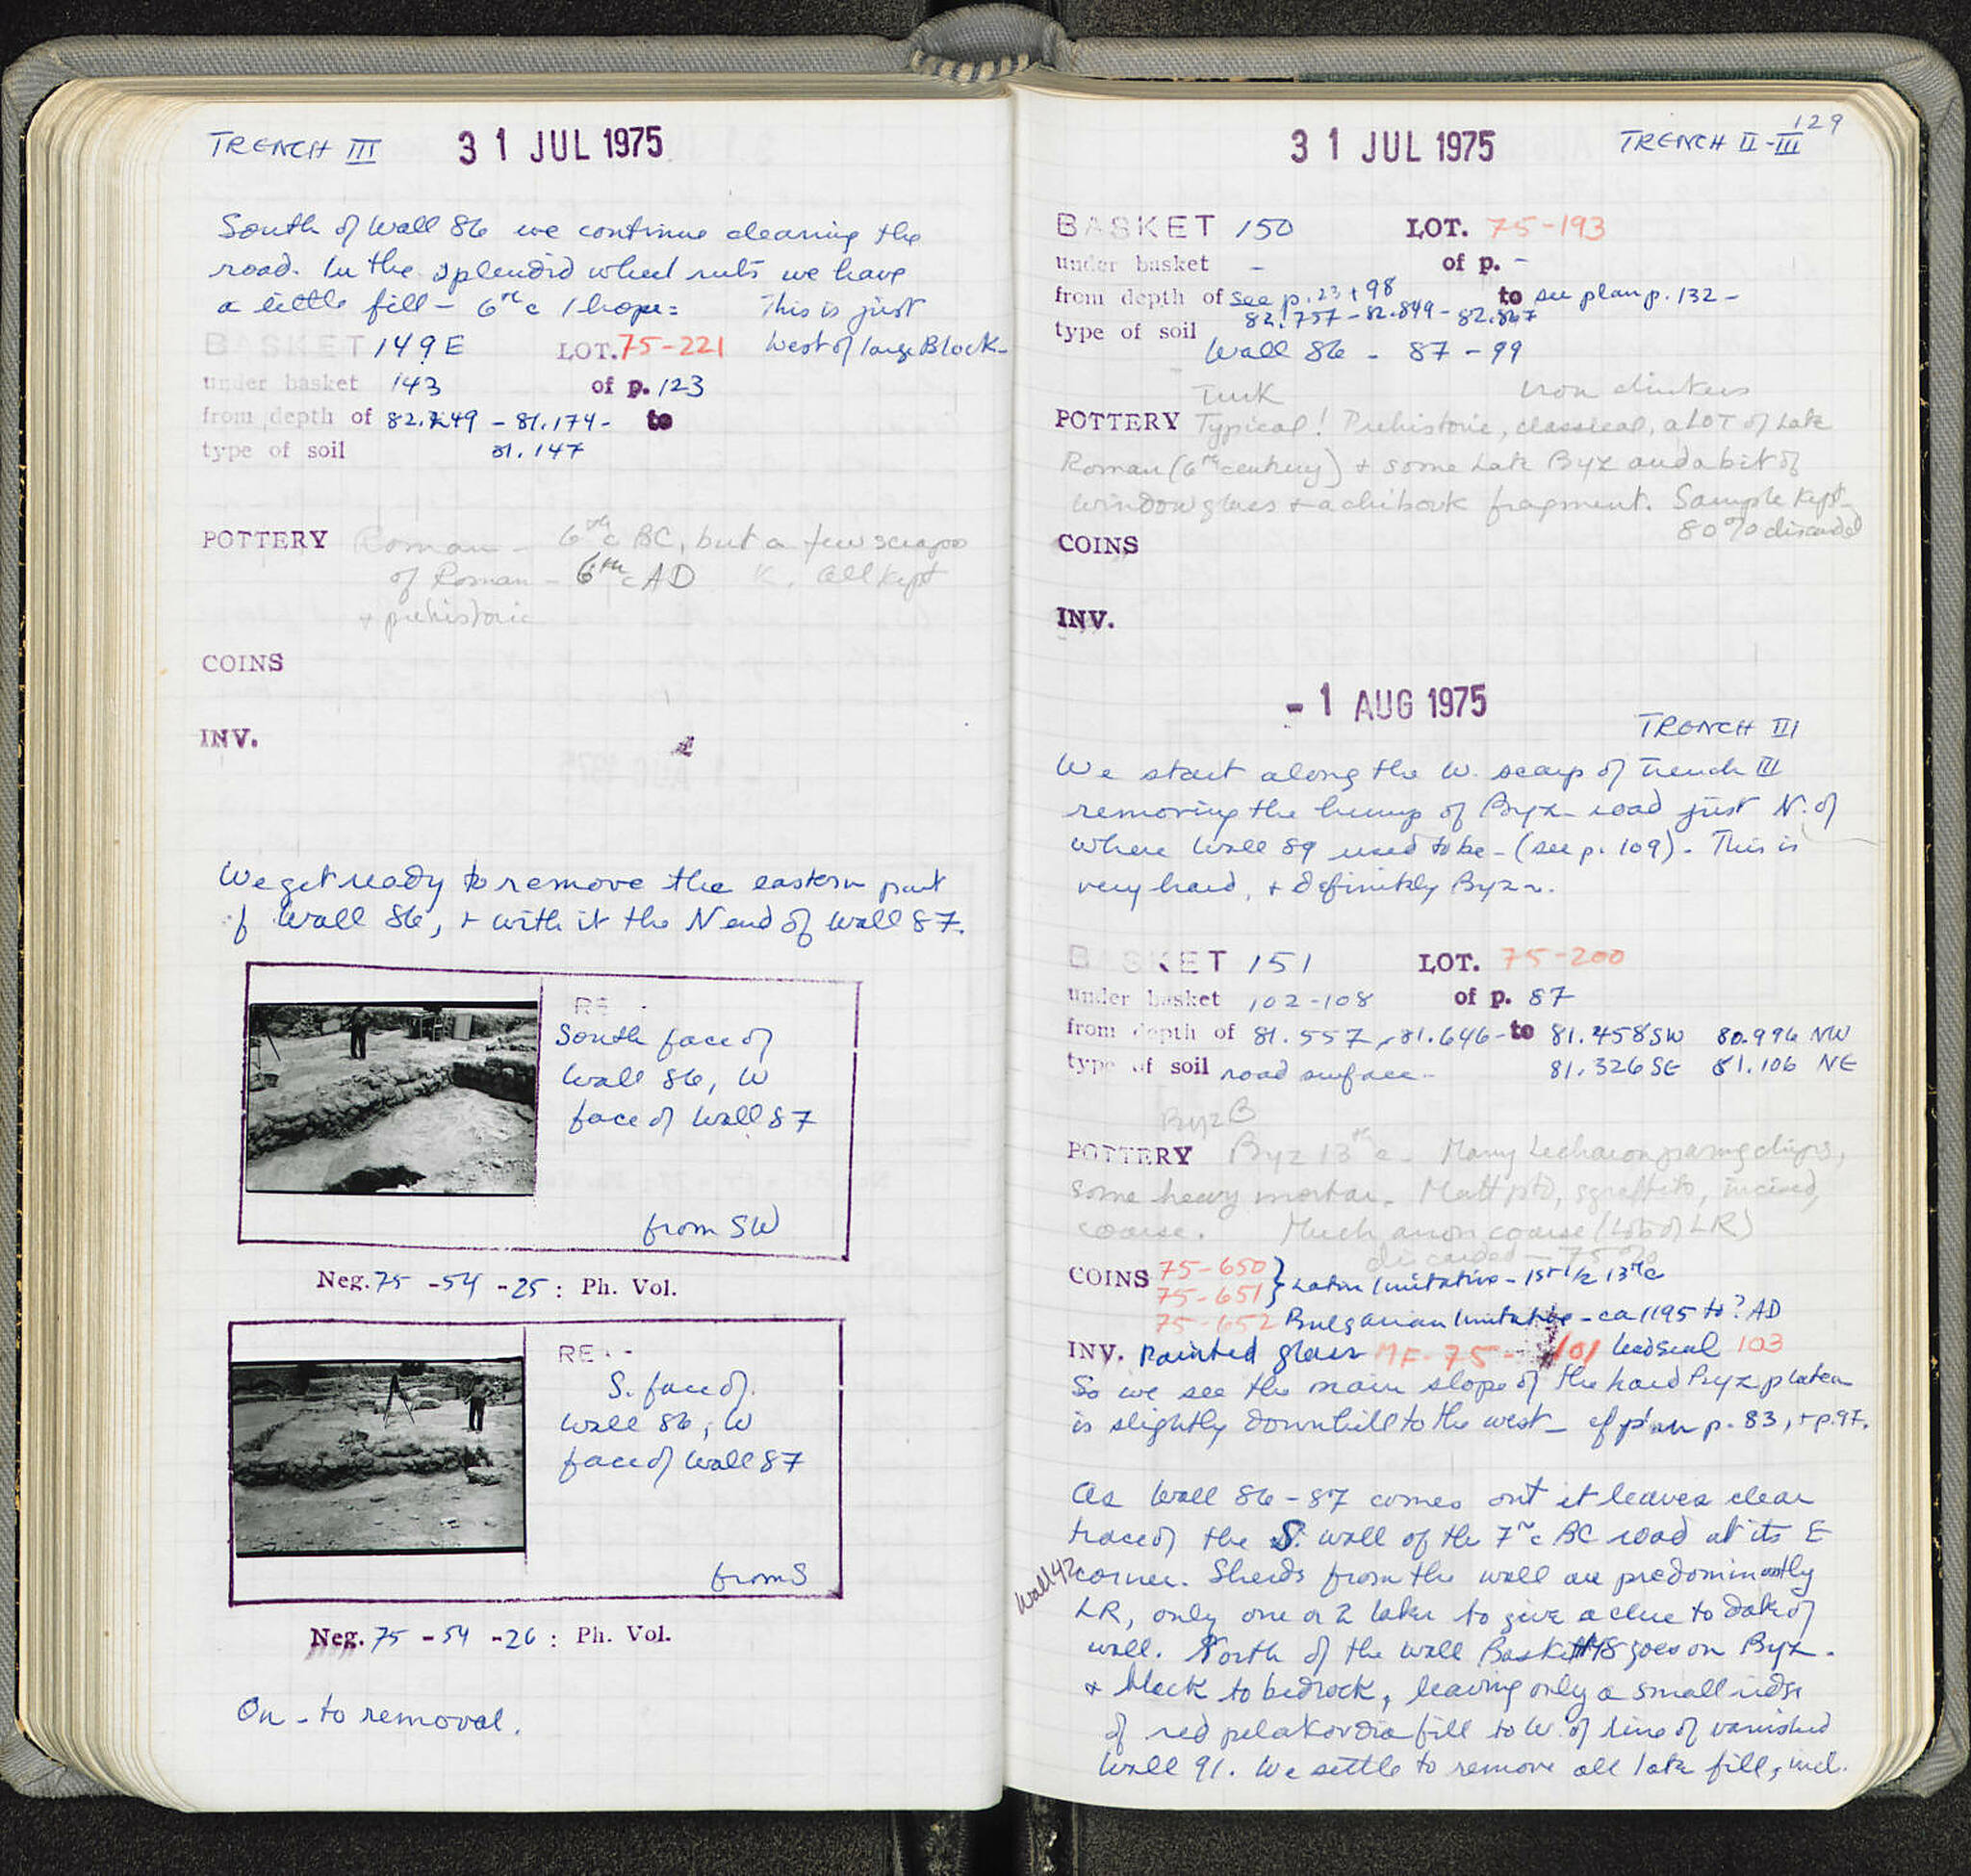 TRENCH III 31 JUL 1975
South of Wall 86 we continue cleaning the
road. In the splendid wheel ruts we have
a little fill - 6th c I hope: This is just
West of large Block -
BASKET 149E LOT. 75-221
under basket 143 of p. 123
from depth of 82.249 - 81.174 - to
81.147
type of soil
POTTERY Roman - 6th c BC, but a few scraps
of Roman - 6th c AD K. All kept
+ prehistoric
COINS
INV.
We get ready to remove the eastern part
of Wall 86, + with it the N end of Wall 87.
RE
South face of
Wall 86, W
face of Wall 87
from SW
Neg. 75 -54 -25 : Ph. Vol.
RE
S. face of
Wall 86, W
face of Wall 87
from S
Neg. 75 -54 -26 : Ph. Vol.
On - to removal.
129
31 JUL 1975 TRENCH II-III
BASKET 150 LOT. 75-193
under basket - of p. -
from depth of see p. 23 + 98 to see plan p. 132 -
82.757 - 82.849 - 82.867
type of soil Wall 86 - 87 - 99
Turk Iron clinkers
POTTERY Typical! Prehistoric, classical, a LOT of Late
Roman (6th century) + some Late Byz and a bit of
window glass + a chibouk fragment. Sample kept -
80% discarded
COINS
INV.
- 1 AUG 1975
TRENCH III
We start along the W. scarp of Trench III
removing the hump of Byz road just N. of
where Wall 89 used to be - (see p. 109). This is
very hard, + definitely Byz.
BASKET 151 LOT. 75-200
under basket 102-108 of p. 87
from depth of 81.557, 81.646 - to 81.458 SW 80.996 NW
type of soil road surface - 81.326 SE 81.106 NE
Byz B
POTTERY Byz 13th c. Many Lechaion paring chips,
some heavy mortar. Matt ptd, sgraffito, incised,
coarse. Much anon coarse (lots of LR)
discarded - 75%
COINS 75-650 } Latin Imitative - 1st 1/2 13th c
75-651
75-652 Bulgarian Imitative - ca 1195 to ? AD
INV. Painted glass MF-75- 101 lead seal 103
So we see the main slope of the hard Byz plateia
is slightly downhill to the west - cf plan p. 83, + p. 97.
As Wall 86-87 comes out it leaves clear
trace of the S. wall of the 7th c BC road at its E
corner. Sherds from the wall are predominantly
Wall 42
LR, only one or 2 later to give a clue to date of
wall. North of the wall Basket 148 goes on Byz -
+ black to bedrock, leaving only a small ridge
of red pelakordia fill to W. of line of vanished
Wall 91. We settle to remove all late fill, incl.